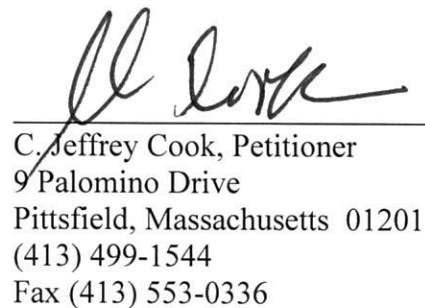 C. Jeffrey Cook, Petitioner
9 Palomino Drive
Pittsfield, Massachusetts  01201
(413) 499-1544
Fax (413) 553-0336